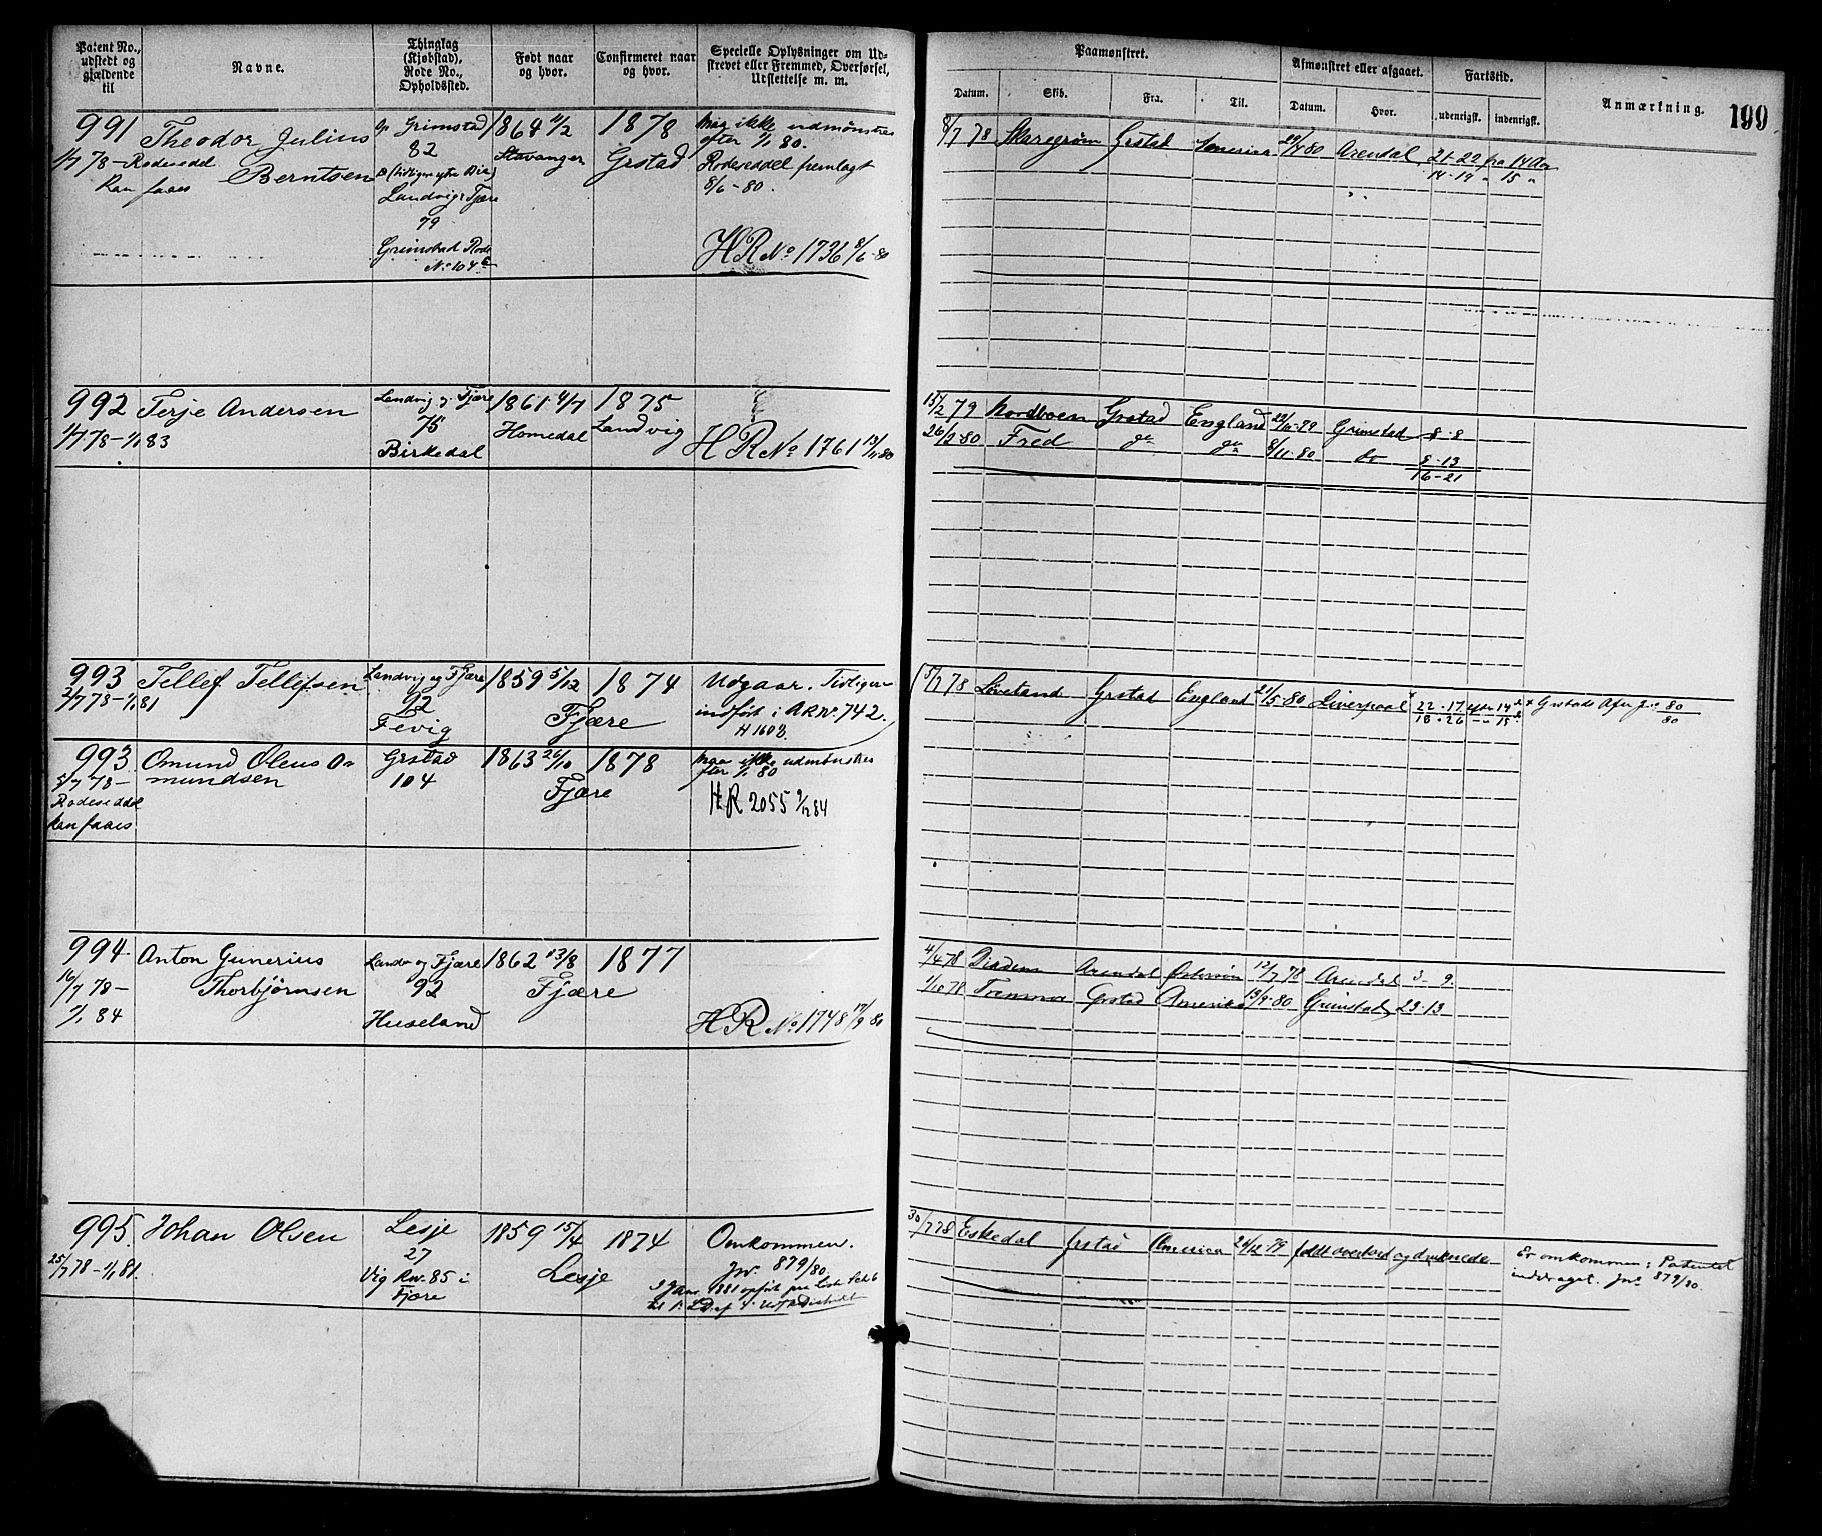 Patent No., udstedt og gjældende til
Navne.
Thinglag (Kjøbstad), Rode No., Opholdssted.
Født naar og hvor.
Confirmeret naar og hvor.
Specielle Oplysninger om Udskrevet eller Fremmed, Overførsel, Udslettelse m. m.
Paamønstret.
Datum.
Skib.
Fra.
Til.
Afmønstret eller afgaaet.
Datum.
Hvor.
Fartstid.
udenrigsk.
indenrigsk.
Anmærkning.
199
991
1/7 78 - Rodeseddel
Kan faaes
Theodor Julius
Berntsen
Grimstad
82
Landvig & Fjære
79
Grimstad Rode
No 104
1864 11/2
Stavanger
1878
Grstad
Maa ikke udmønstres
efter 1/1 80.
Rodeseddel fremlagt
8/6 - 80.
HR No 1736 8/6 80
8/7 78 Skaregrøm Grstad America 29/4 80 Arendal 21-22 fra 14 Aar
14-19 " 15 "
992
1/7 78 - 1/1 83
Terje Andersen
Landvig & Fjære
75
Birkedal
1861 4/7
Homedal
1875
Landvig
HR No 1761 13/11 80
15/2 79 Nordboen Grstad England 22/10-79 Grimstad 8-8
26/2-80 Fred do do 8/11-80 do 8-13
16-21
993
2/7 78 - 1/1 81
Tellef Tellefsen
Landvig og Fjære
92
Fevig
1859 5/12
1874
Fjære
Udgaar. Tidligere
indført i ARNo. 742.
H 1603.
5/7 78 Løveland Grstad England 21/5-80 Liverpool 22-17 efter 14
18-26 " 15
993
5/7 78 -
Rodeseddel
kan faaes
Omund Oleus O-
mundsen
Grstad
104
1863 26/10
1878
Fjære
Maa ikke udmønstres
efter 1/1 80
HR 2055 9/12 84
994
16/7 78 -
1/1 84
Anton Gunerius
Thorbjørnsen
Landv og Fjære
92
Huseland
1862 13/8
1877
Fjære
HR No 1748 17/9 80
4/4 78 Diadem Arendal Østersøn 12/7 78 Arendal 3-9.
1/10 78 Grstad Amerika 13/9-80 Grimstad 23-13
995
25/7 78 - 1/1 81.
Johan Olsen
Lesje
27
Vig RNo. 85 i
Fjære
1859 15/4
1874
Lesje
Omkommen.
Jno. 879/80.
30/7 78 Eskedal Grstad America 24/12 79 faldt overbord og druknede
Er omkommen; Patentet
inddraget. Jno 879/80.